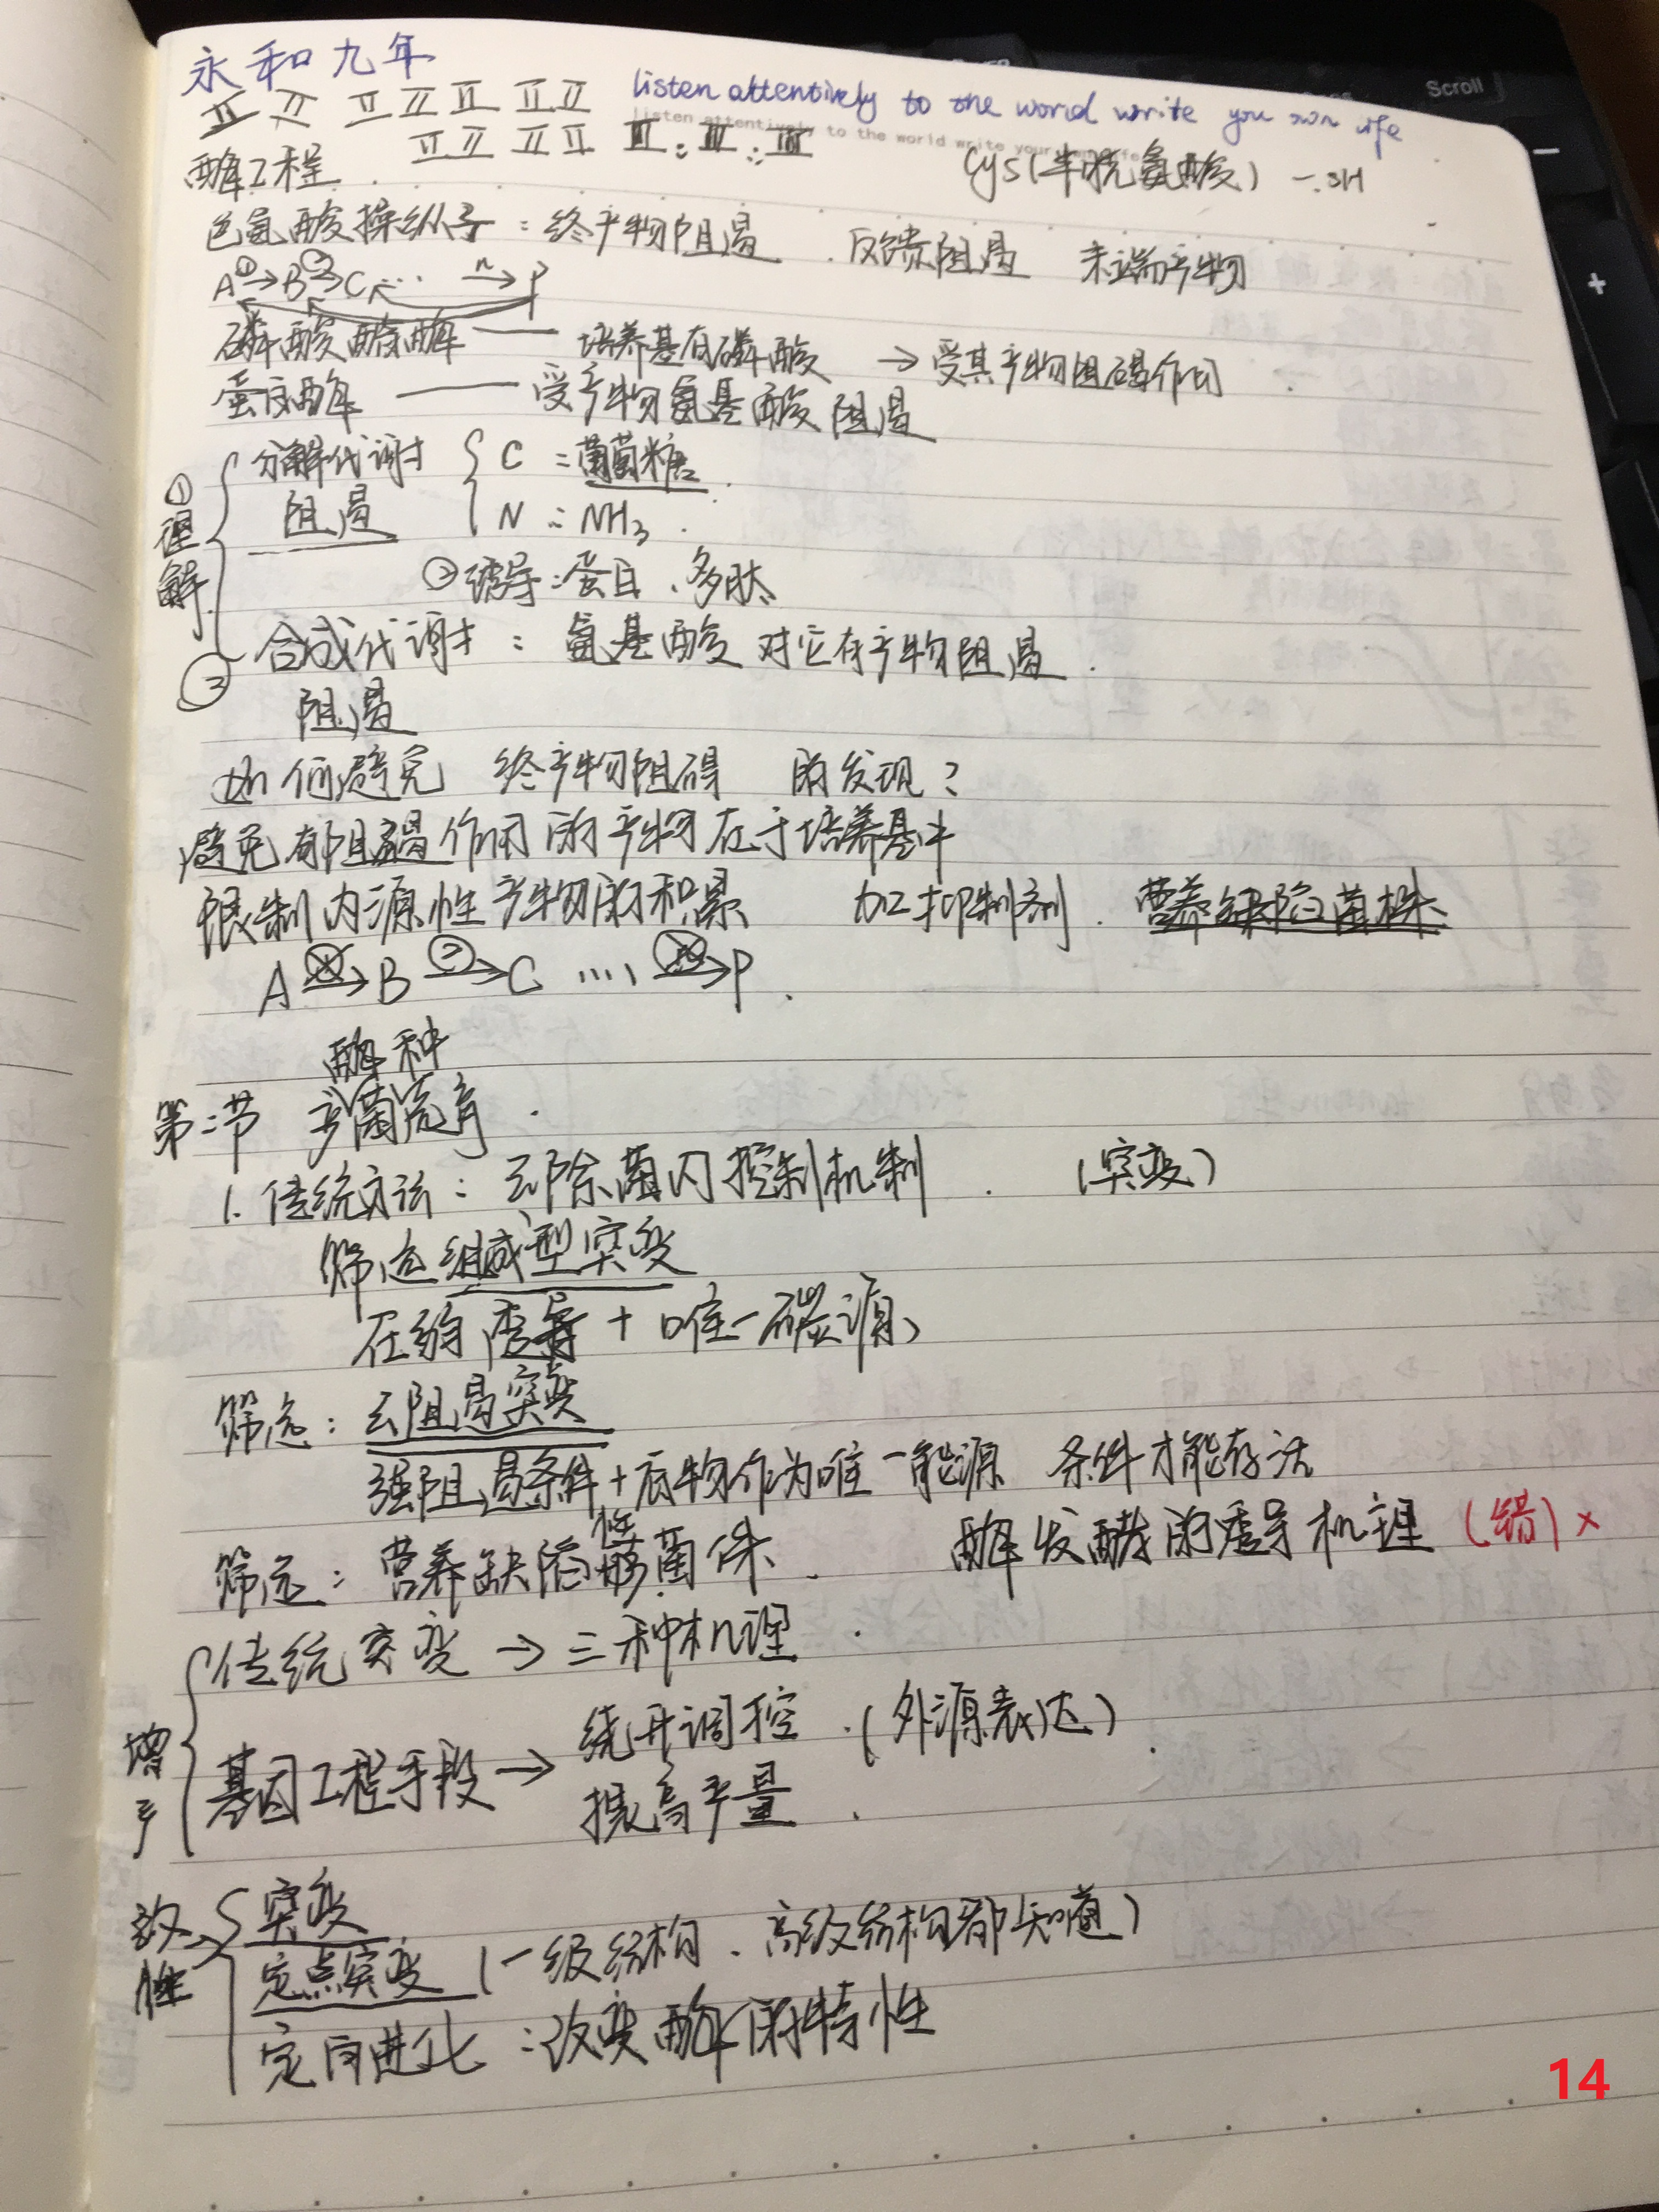 永和九年
listen attentively to the world write you own life
listen attentively to the world write your own life
Scroll
酶工程
Cys(半胱氨酸) -SH
色氨酸操纵子：终产物阻遏 反馈阻遏 末端产物
A ①→ B ②→ C ... n→ P
磷酸酯酶 —— 培养基有磷酸 → 受其产物阻碍作用
蛋白酶 —— 受产物氨基酸阻遏
① 理解
分解代谢阻遏
C：葡萄糖
N：NH3
②诱导：蛋白、多肽
③ 合成代谢阻遏：氨基酸对它有产物阻遏
如何避免 终产物阻碍 的发现？
避免有阻遏作用的产物在于培养基中
限制内源性产物的积累 加抑制剂 营养缺陷菌株
A → B ②→ C .... → P
酶种
第二节 产菌流育
1. 传统方法：去除菌内控制机制 (突变)
筛选组成型突变
在约诱导 + 唯一碳源
筛选：去阻遏突变
强阻遏条件 + 底物作为唯一能源 条件才能存活
筛选：营养缺陷性菌株 酶发酵的诱导机理 (错) ×
增产
传统突变 → 三种机理
基因工程手段 → 绕开调控 (外源表达)
提高产量
改性
突变
定点突变 (一级结构、高级结构都知道)
定向进化：改变酶的特性
14